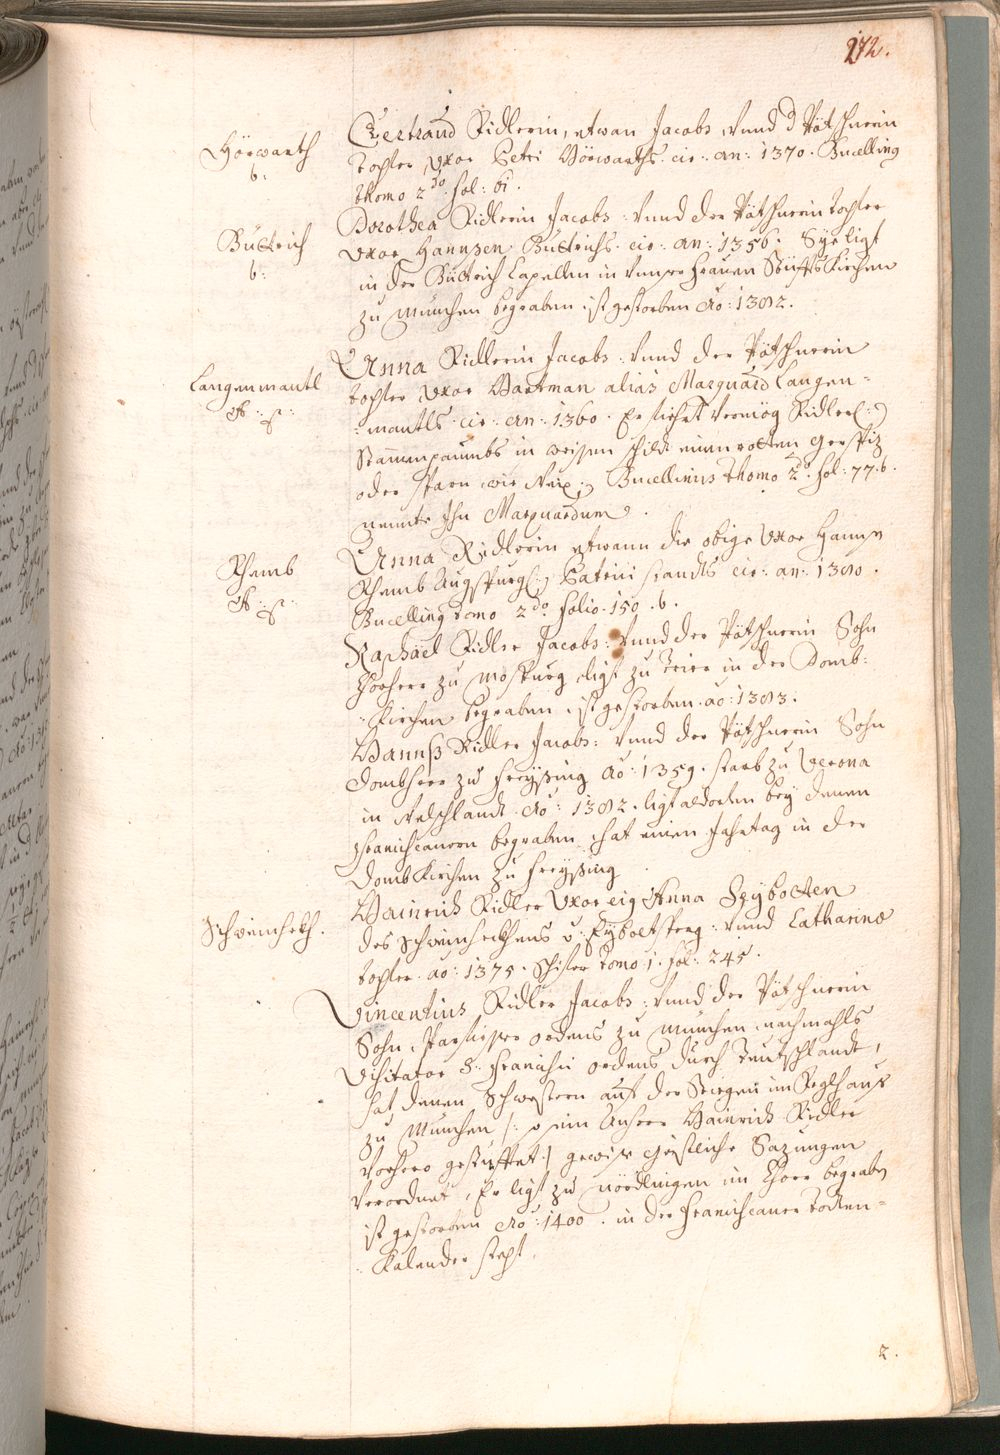 272.
Hörwarth
b:
Gertraud Ridlerin, etwan Jacobs vnnd d Pötschnerin
tochter Vxor Petri Hörwarths. cir: an: 1370. Bucelling
thomo 2do fol: 61.
Büttrich
b:
Dorothea Ridlerin Jacobs: vnnd der Pötschnerin tochter
vxor Hannsen Büttrichs. cir: an: 1356. Sye ligt
in der Büttrich Capellen in vnnser Frauen Stüffts Kirchen
zu München begraben, ist gestorben Ao: 1382.
Langenmantl
A: S:
Anna Ridlerin Jacobs: vnnd der Pötschnerin
tochter Vxor Hartman alias Marquard Langen=
=mantls. cir: an: 1360. Er fiehrt vermög Ridler:
Stammenpaumbs in weissen schildt einen rotten
oder sparn wie Bucellinus thomo 2do fol: 77. b.
nennts Ihn Marquardum.
Rhemb
A: S:
Anna Ridlerin etwann die obige Vxor Hannß
Rhemb Augspurg: Patrini standts cir: an: 1380.
Bucelling tomo 2do folio. 150. b.
Raphäel Ridler Jacobs: vnnd der Pötschnerin Sohn
Chorherr zu Mosburg ligt zu Trier in der Domb:
Kirchen begraben, ist gestorben ao: 1383.
Hannß Ridler Jacobs: vnnd der Pötschnerin Sohn
Dombherr zu Freyßing Ao: 1359. starb zu Verona
in Welschlandt Ao: 1382. ligt aldorten bey denen
Franciscanern begraben, hat einen Jahrtag in der
Domb Kirchen zu Freyßing
Schweinhekh.
Hainrich Ridler Vxor eig Anna Seybotten
des Schweinhekhens v: Eyboltsperg: vnnd Catharinæ
tochter. ao: 1375. Schifer Tomo 1. fol: 245.
Vincentius Ridler Jacobs: vnnd der Pötschnerin
Sohn, Parfüsser ordens zu München, nachmahls
Visitator S: Francisci ordens durch Teutschlandt,
hat denen Schwestern auf der Stiegen im Reglhaus
zu München /: so sein Anherr Hainrich Ridler
vorhero gestüfftet:/ gewise geistliche Sazungen
verordnet, Er ligt zu Nördlingen im Chor begraben
ist gestorben Ao: 1400. in der Franciscaner Todten=
Kalender steht.
2.